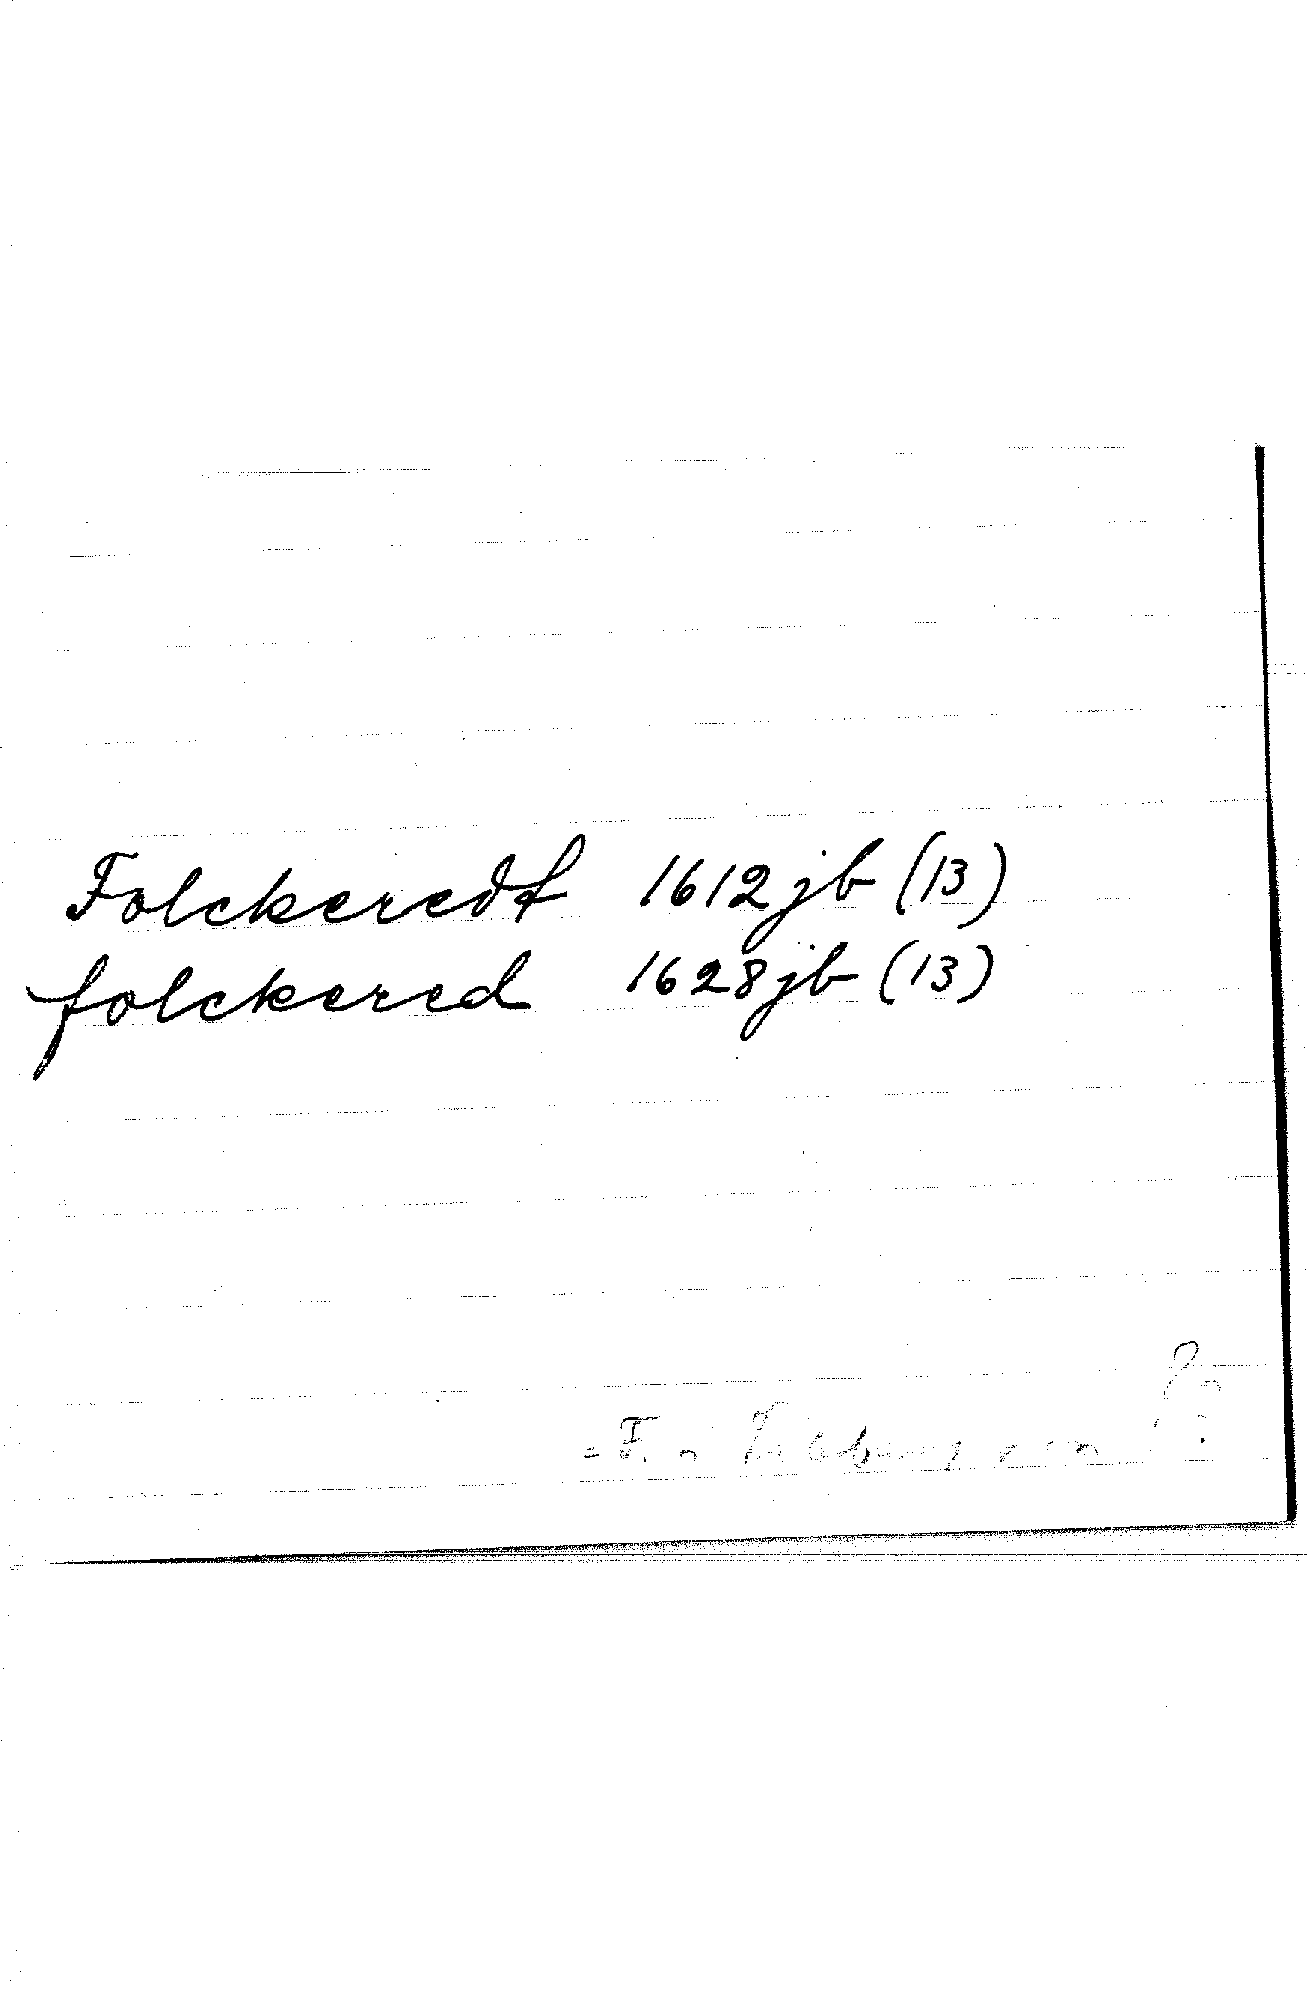 Folckeredt 1612 jb (13)
folckered 1628 jb (13)
= F.